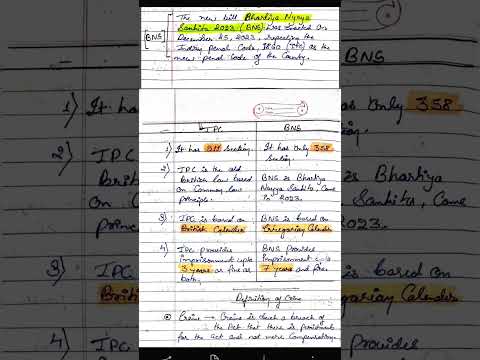 The new bill Bhartiya Nyaya
Sanhita 2023 (BNS) was enacted on
December 25, 2023, repealing the
Indian Penal Code, 1860 (IPC) as the
new penal code of the Country.
BNS
IPC
BNS
1) It has 511 Section
It has only 358
Section.
2) IPC is the old
British law based
on Common law
principle.
BNS is Bhartiya
Nyaya Sanhita, Came
in 2023.
3) IPC is based on
British Calender
BNS is based on
Gregorian Calender
4) IPC provides
imprisonment upto
3 years or fine or
both.
BNS Provides
imprisonment
7 years and fine
Definition of Crime
Crime → Crime is Such a breach of
the Act that there is punishment
for the act and not mere Compensation.
1) It has
2) IPC
British
on Co
princ
3) IPC
British
4) IPC
has only 358
Bhartiya
Sanhita, Came
2023.
is based on
Gregorian Calender
Provides